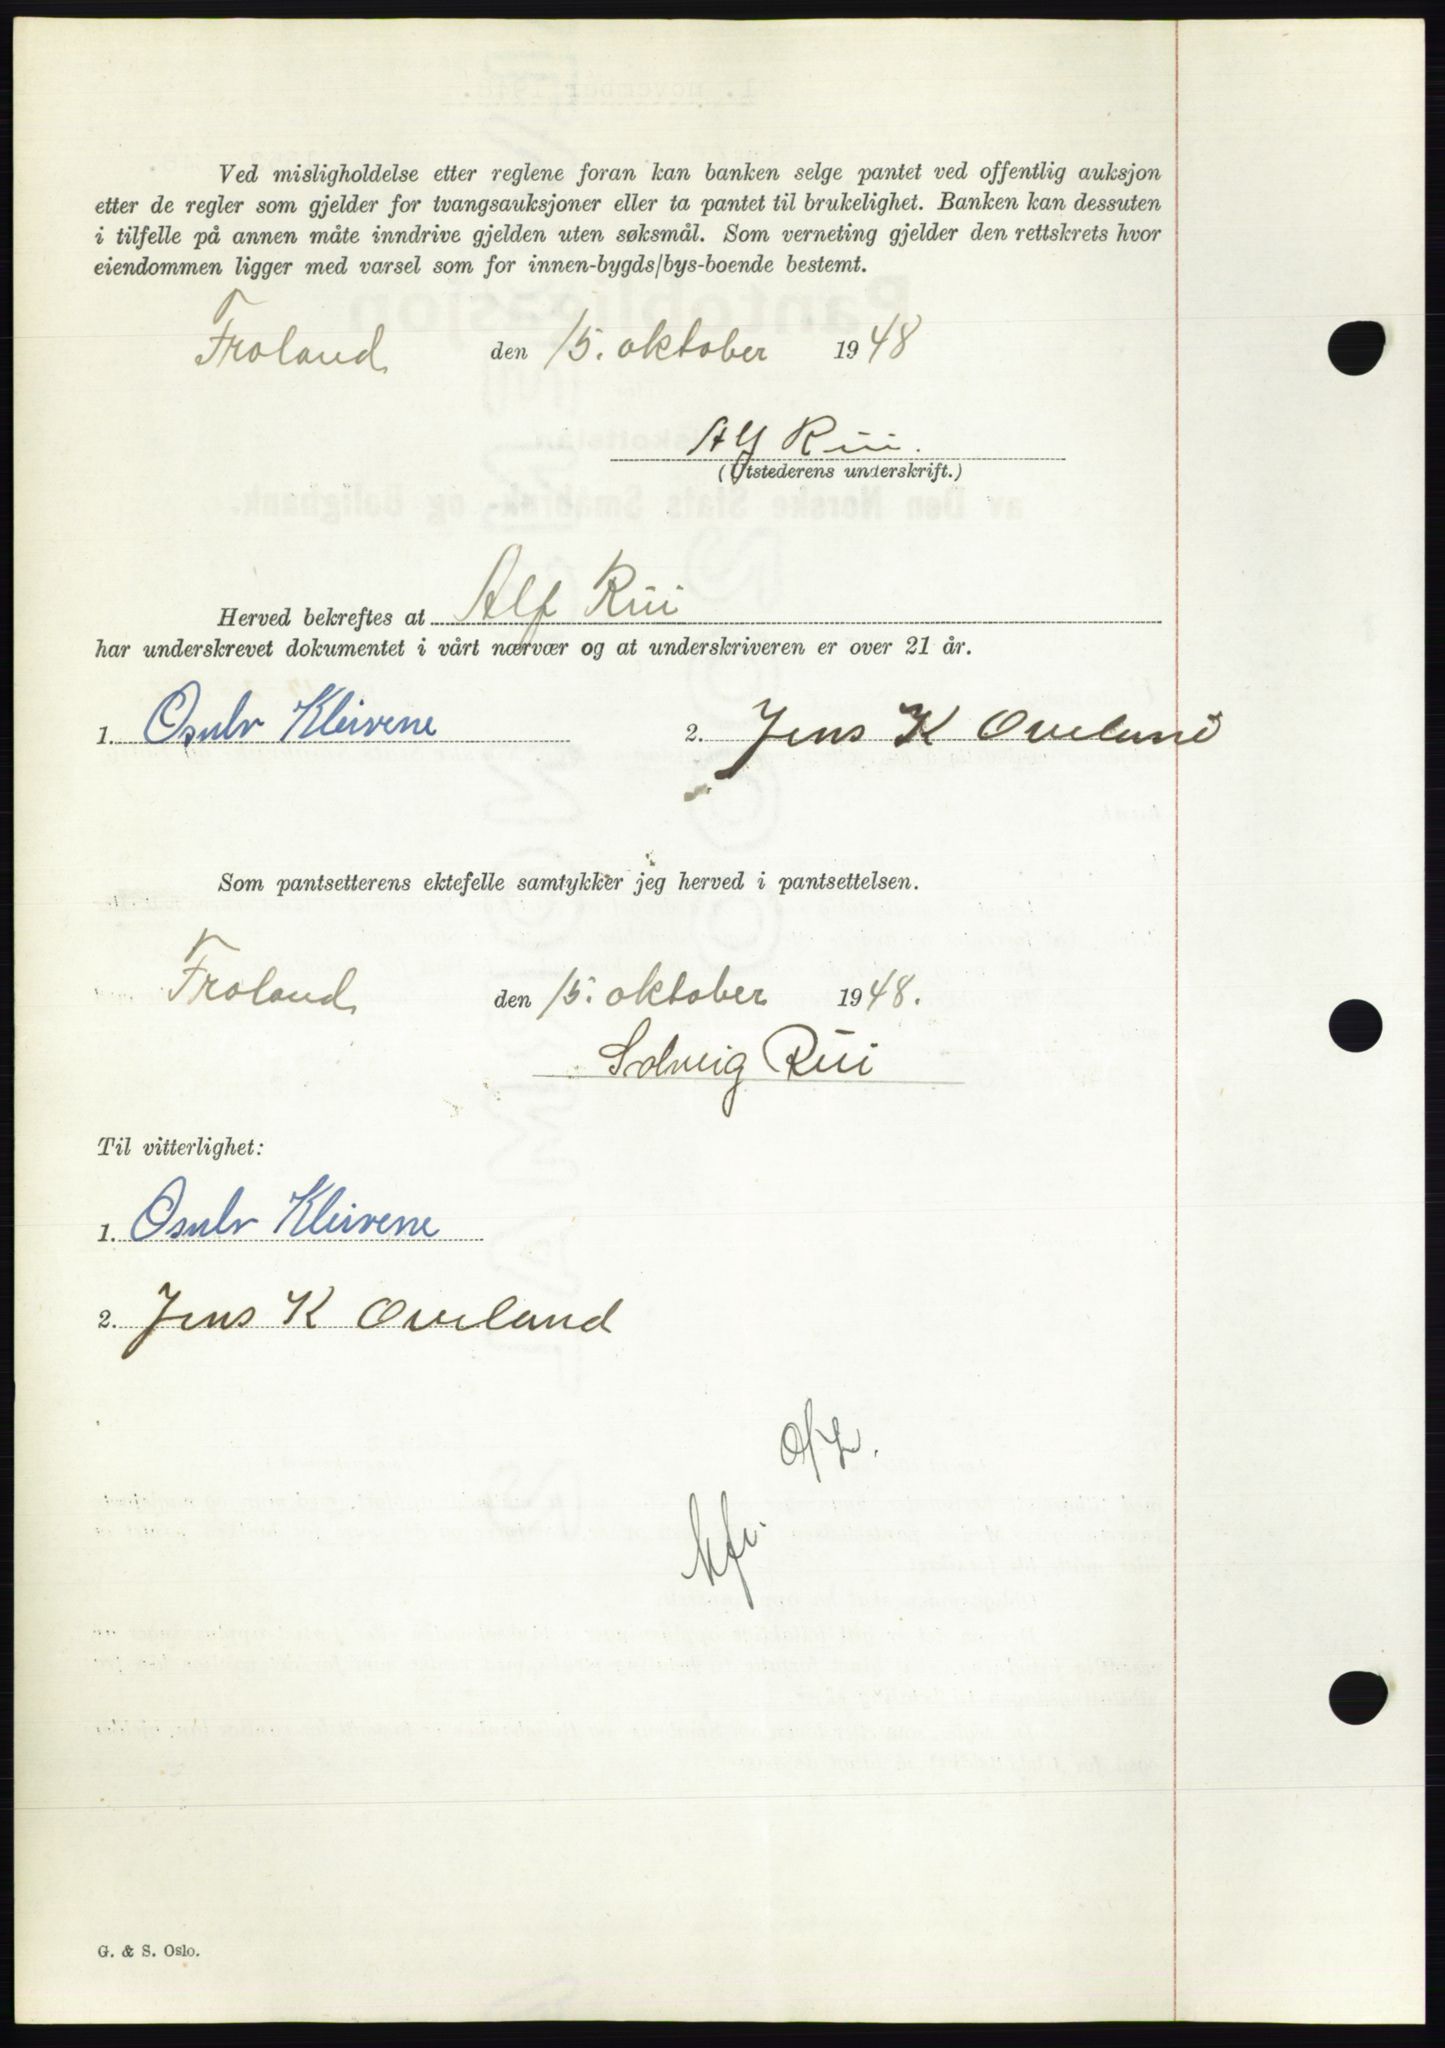 Ved misligholdelse etter reglene foran kan banken selge pantet ved offentlig auksjon
etter de regler som gjelder for tvangsauksjoner eller ta pantet til brukelighet. Banken kan dessuten
i tilfelle på annen måte inndrive gjelden uten søksmål. Som verneting gjelder den rettskrets hvor
eiendommen ligger med varsel som for innen-bygds/bys-boende bestemt.
Froland den 15. oktober 1948
Alf Rui.
(Utstederens underskrift.)
Herved bekreftes at Alf Rui
har underskrevet dokumentet i vårt nærvær og at underskriveren er over 21 år.
1. Osulv Kleivene 2. Jens K Oveland
Som pantsetterens ektefelle samtykker jeg herved i pantsettelsen.
Froland den 15. oktober 1948.
Solveig Rui
Til vitterlighet:
1. Osulv Kleivene
2. Jens K Oveland
G. & S. Oslo.